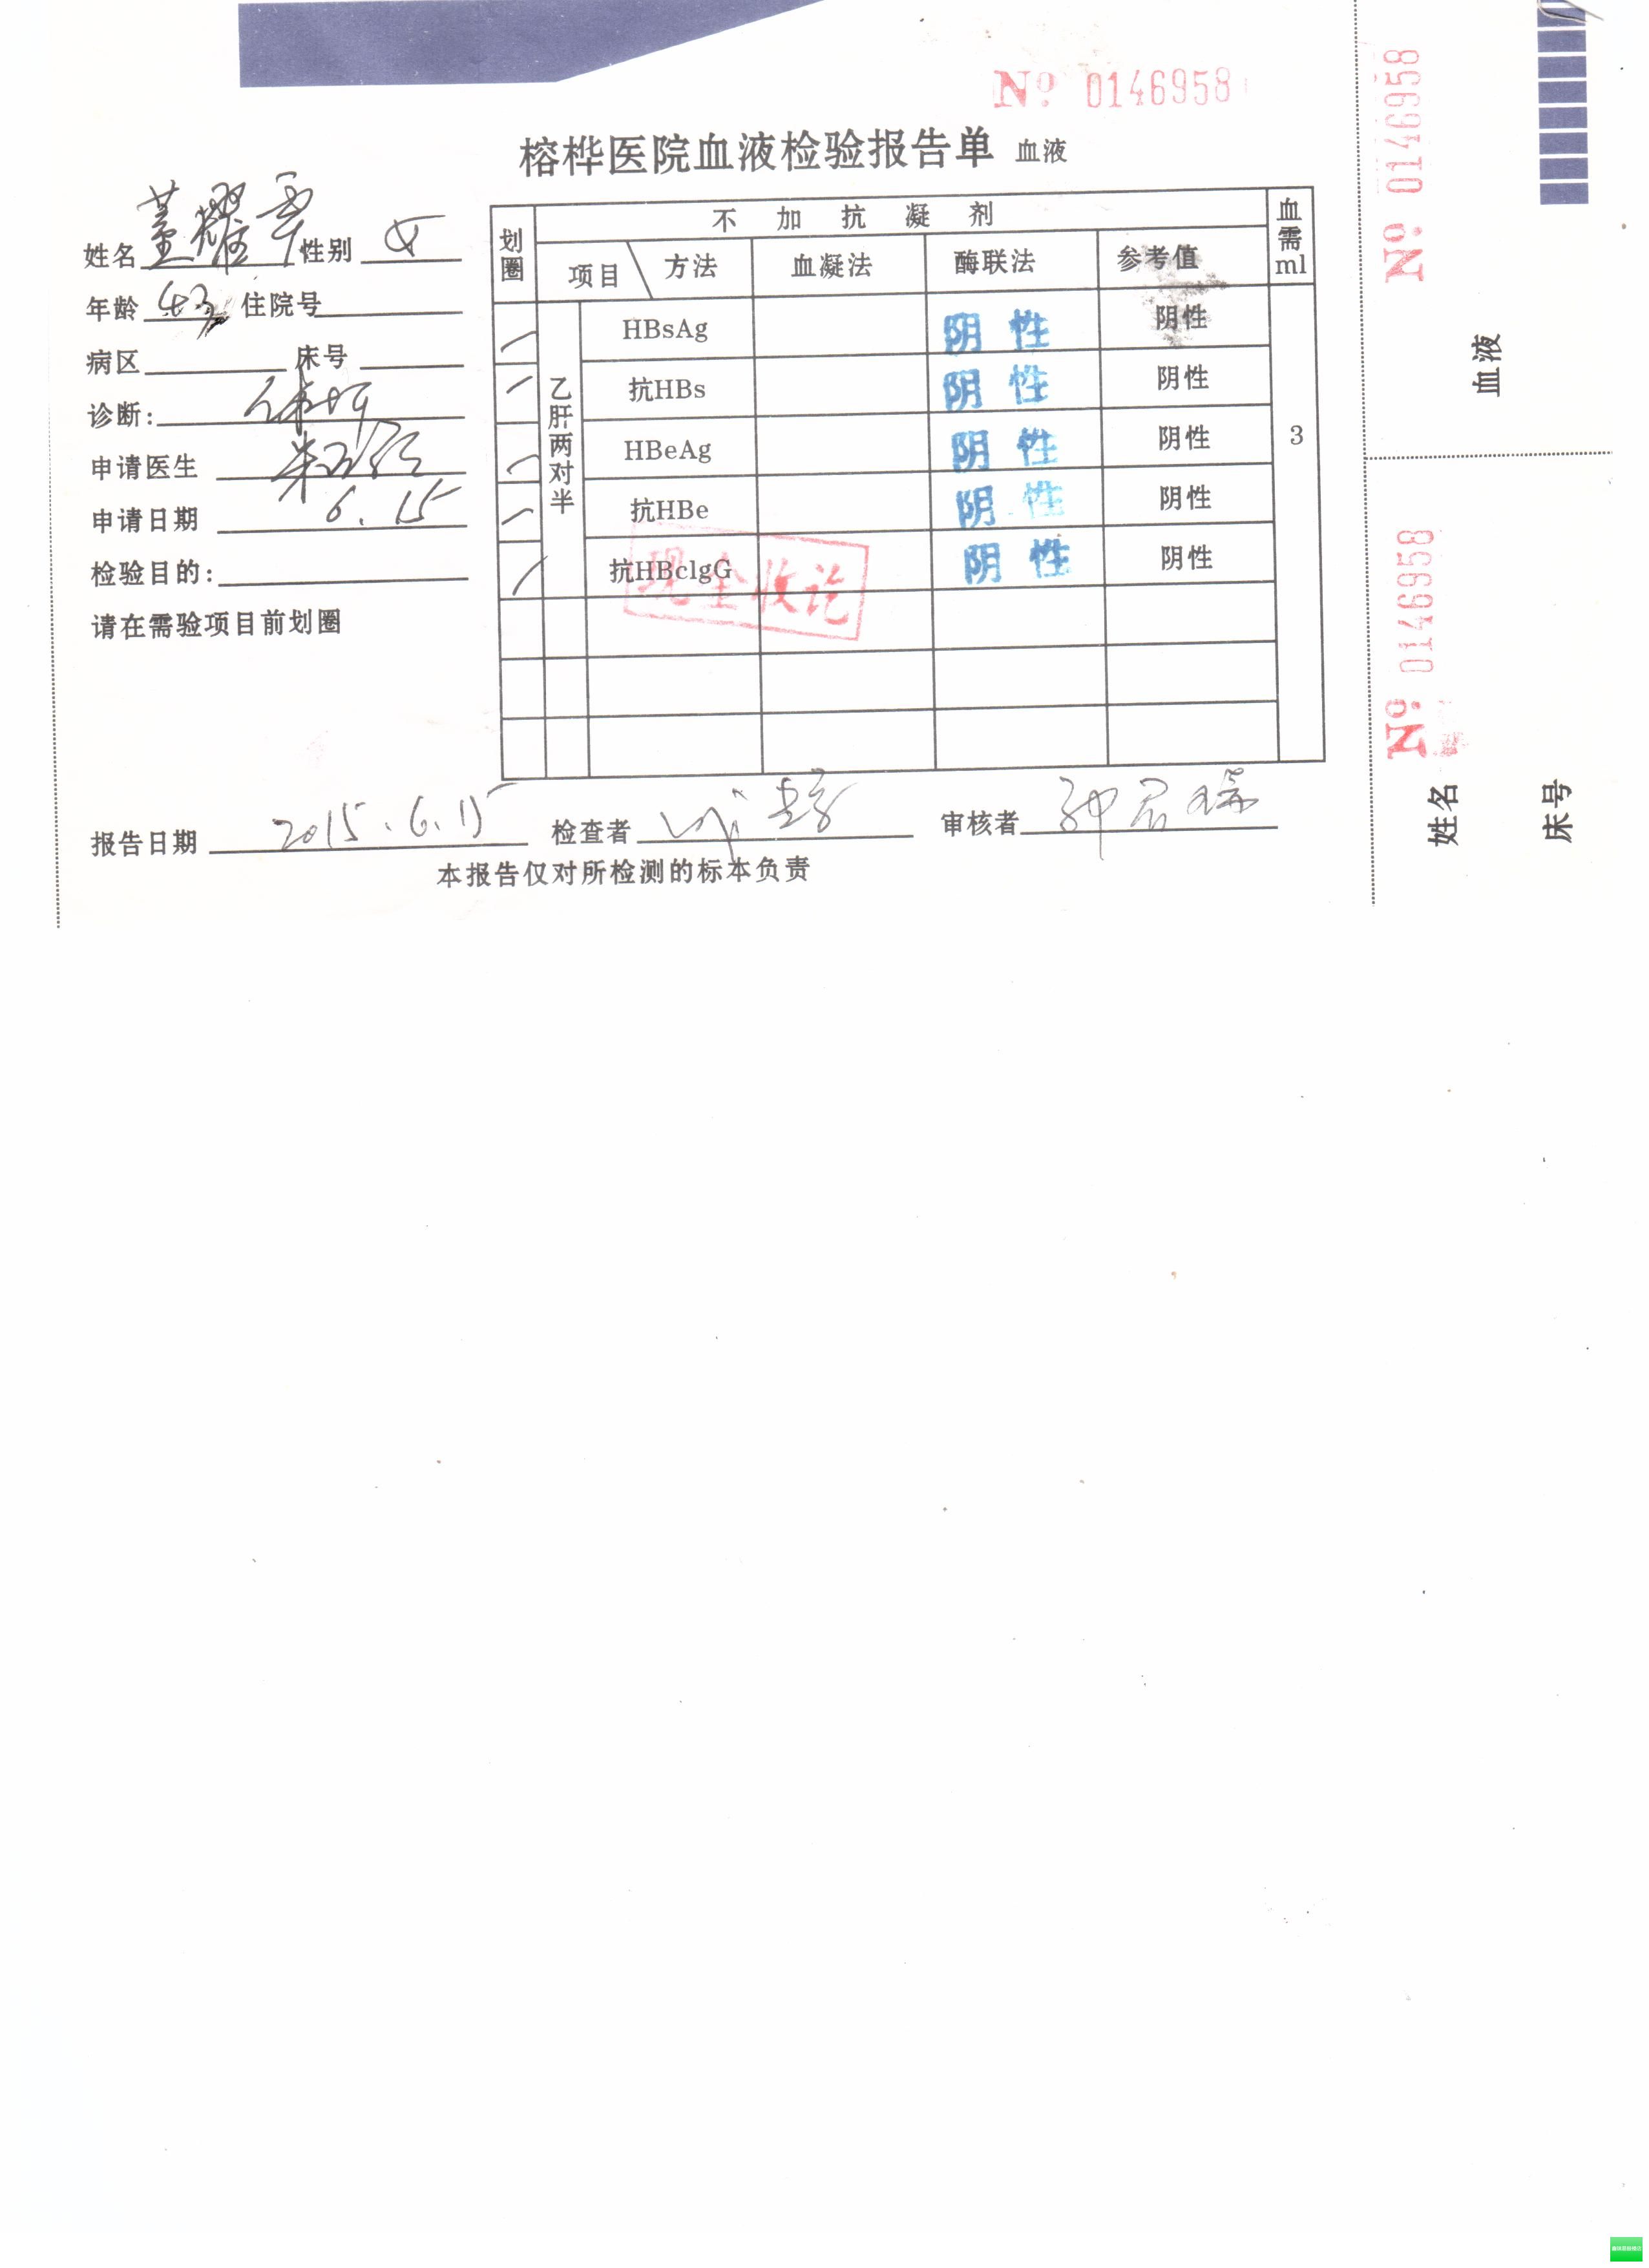 No 0146958
榕桦医院血液检验报告单 血液
姓名 董耀平 性别 女
年龄 43岁 住院号
病区 床号
诊断: 体检
申请医生
申请日期 6.15
检验目的:
请在需验项目前划圈
划圈 不加抗凝剂 血需ml
项目 方法 血凝法 酶联法 参考值
乙肝两对半
HBsAg 阴性 阴性
抗HBs 阴性 阴性
HBeAg 阴性 阴性 3
抗HBe 阴性 阴性
抗HBclgG 阴性 阴性
现金收讫
报告日期 2015.6.15 检查者 审核者
本报告仅对所检测的标本负责
No 0146958
血液
No 0146958
姓名
床号